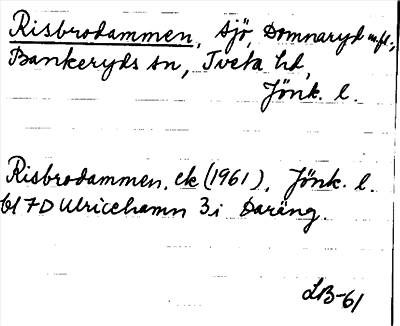 Risbrodammen, sjö, Domnaryd m.fl.,
Bankeryds sn, Tveta hd,
Jönk. l.
Risbrodammen, ek (1961), Jönk. l.
bl 7D Ulricehamn 3i Daräng.
LB-61